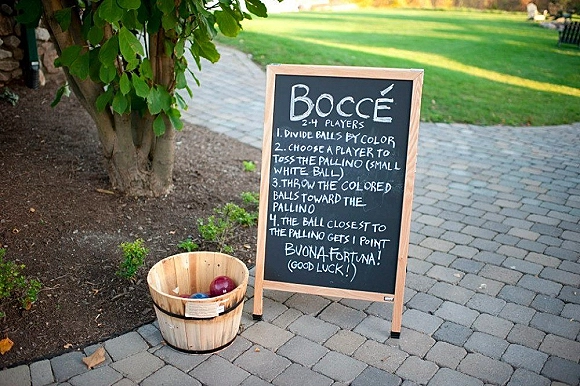 BOCCÉ
2-4 PLAYERS
1. DIVIDE BALLS BY COLOR
2. CHOOSE A PLAYER TO
TOSS THE PALLINO (SMALL
WHITE BALL)
3. THROW THE COLORED
BALLS TOWARD THE
PALLINO
4. THE BALL CLOSEST TO
THE PALLINO GETS 1 POINT
BUONA FORTUNA!
(GOOD LUCK!)